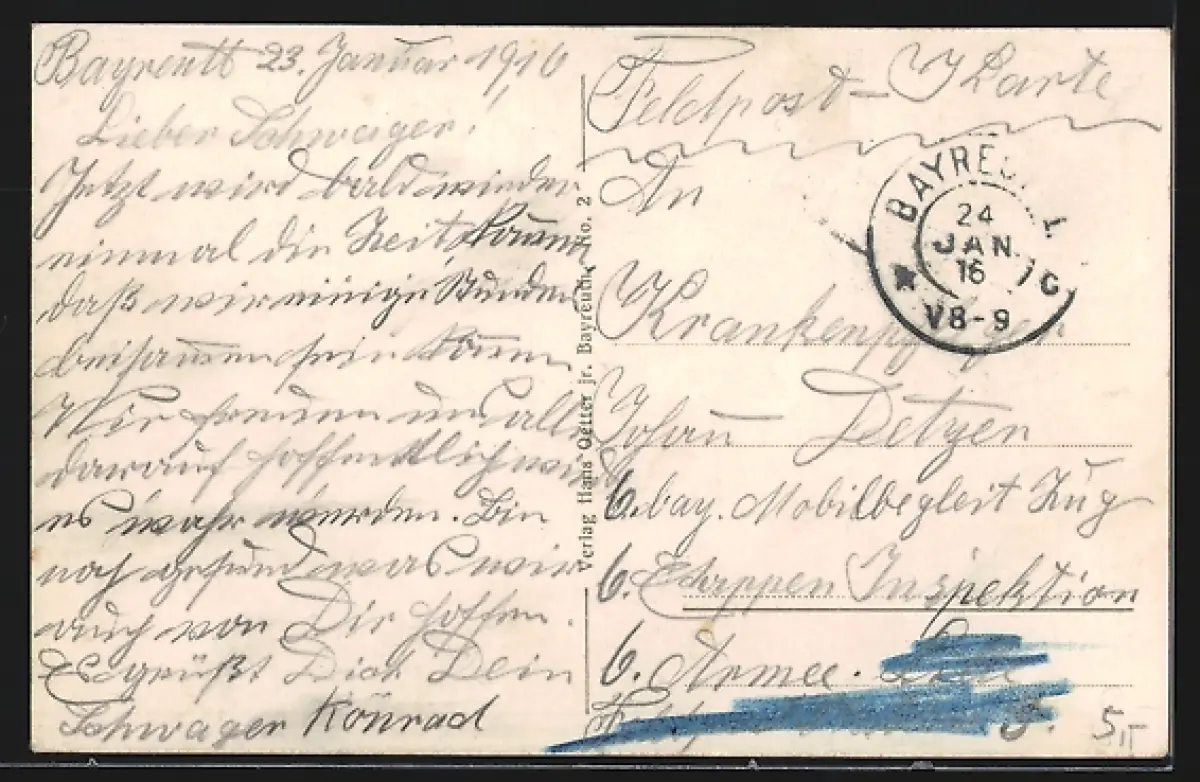 Bayreuth 23. Januar 1916
Lieber Schwager!
Jetzt wird bald wieder
einmal die Zeit kommen
daß wir einige Stunden
beisammen sein können
Wir freuen uns alle
darauf hoffentlich wird
es wahr werden. Bin
noch gesund was wir
auch von Dir hoffen.
Es grüßt Dich Dein
Schwager Konrad
Verlag Hans Oetter jr. Bayreuth, No. 2
Feldpost-Karte
An
Krankenpfleger
Johann Detzer
6. bay. Mobilbegleit Zug
6. Etappen Inspektion
6. Armee.
5.
BAYREUTH 1.
24
JAN.
16
V8-9